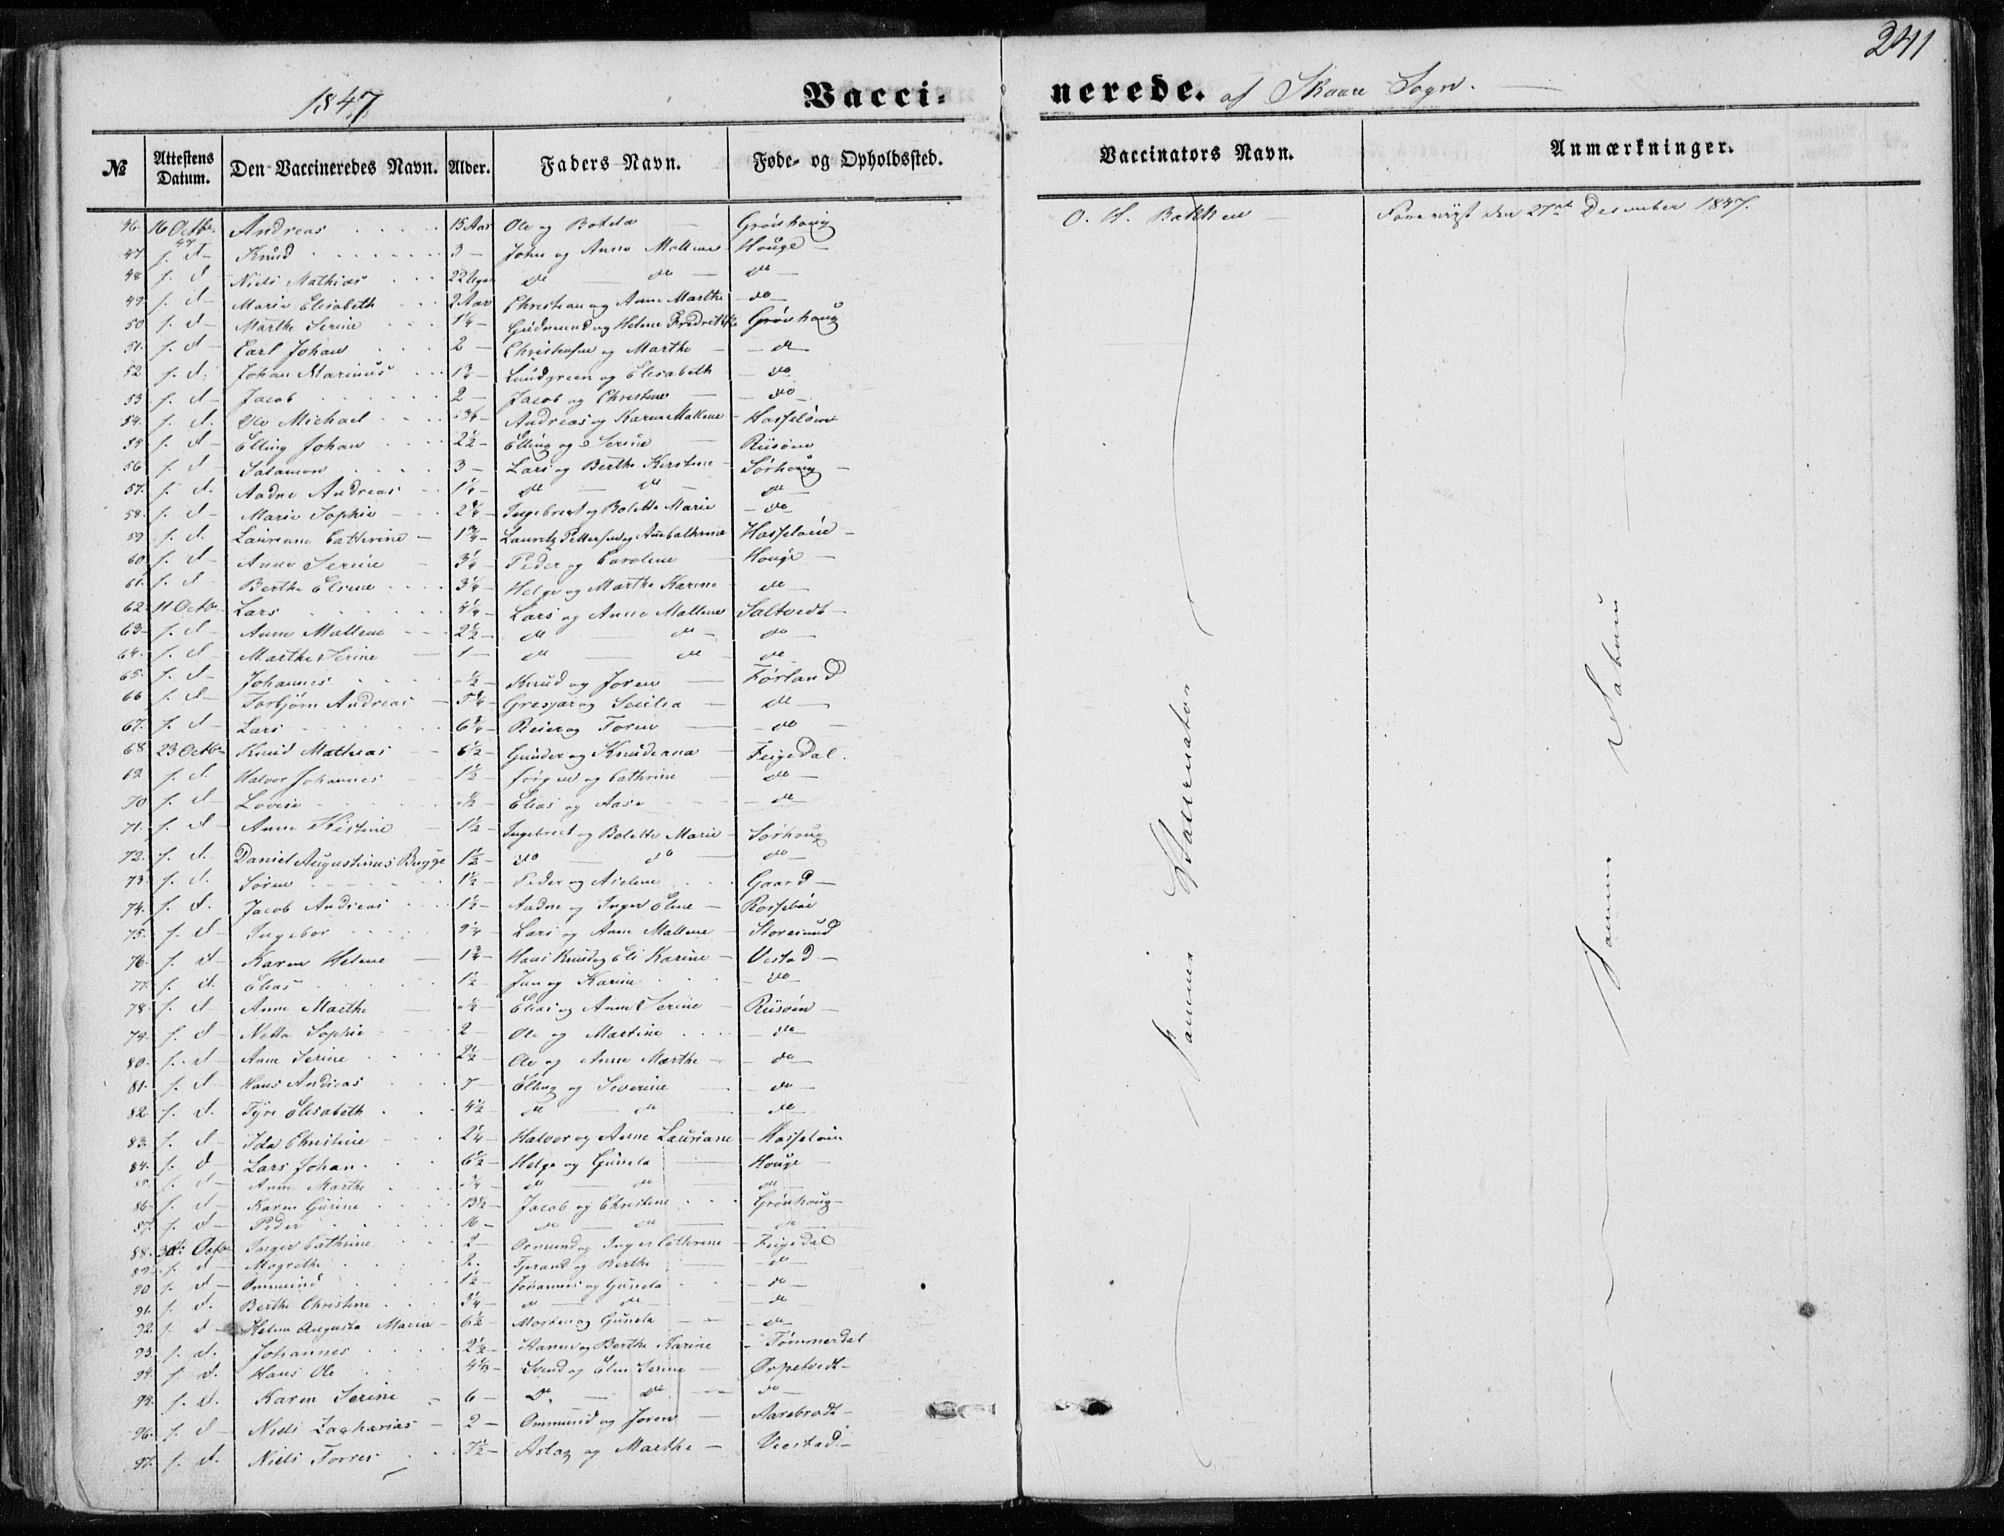 241
1847
Vacci-
nerede. af Skaare Sogn.
№ Attestens Datum. Den Vaccineredes Navn. Alder. Faders Navn. Føde- og Opholdssted. Vaccinators Navn. Anmærkninger.
46. 16 Octbr 47 Andreas 15 Aar Ole og Grønhoug O. H. Bakken Foreviist den 27de December 1847.
47 f. d Knud 3 John og Anne Mallene Houge
48 f. d Niels Mathias 22 Uger do do do
49. f. d Marie Elisabeth 2 Aar Christian og Anne Marthe do
50 f. d Marthe Serine 1¼ Gudmund og Helene Fredrikke Grønhoug
51. f. d Carl Johan 2 Christensen og Marthe do
52 f. d. Johan Marinus Lundgreen og Elisabeth do
53 f. d Jacob 2 Jacob og Christine do
54. f. d. Ole Michael Andreas og Karen Mallene Hasseløen
55 f. d Elling Johan 2½ Elling og Serine Riisøen
56 f. d Salamon 3 Lars og Berthe Kirstine Sørhoug
57. f. d. Aadne Andreas 1¼ do do do
58. f. d Marie Sophie 2¾ Ingebret og Bolette Marie do
59 f. d. Lauriane Cathrine 1¾ Lauritz Pettersen og Ane Cathrine Hasseløen
60. f. d Anne Serine 3¼ Peder og Caroline Houge
61. f. d Berthe Elene 3¼ Helge og Marthe Karine do
62. 11 Octbr Lars Lars og Anne Mallene Saltvedt
63. f. d Anne Mallene 2½ do do do
64. f. d Marthe Serine 1 do do do
65. f. d Johannes ½ Knud og Joren Førland
66 f. d Torbjørn Andreas 5¼ Gresjar og Sicilia do
67. f. d Lars Reier og Toren do
68 23 Octbr Knud Mathias 6½ Gunder og Knudeana Feigedal.
69 f. d. Halvor Johannes 1½ Jørgen og Cathrine do
70 f. d Lovise ½ Elias og Aasa do
71. f. d Anne Kistine 1½ Ingebret og Bolette Marie Sørhoug
72. f. d. Daniel Augustinus Bugge 1½ do do do
73. f. d. Søren 1½ Peder og Aselene Gaard
74. f. d. Jacob Andreas 1½ Aadne og Inger Elene Rossebøe
75. f. d Ingebor Lars og Anne Mallene Storesund
76. f. d Karen Helene Hans Knud og Eli Karine Vestad
77. f. d. Elias 1½ Jan og Karine do
78 f. d Anne Marthe ½ Elias og Anne Serine Riisøen
79. f. d Netta Sophie 2 Ole og Martine do
80. f. d Ane Serine 2½ Ole og Anne Marthe do
81. f. d Hans Andreas 7 Elling og Severine do
82. f. d. Tyre Elisabeth 4½ do do do
83. f. d Ida Christine 2¼ Halvor og Anne Lauriane Hasseløen
84. f. d Lars Johan. 6½ Helge og Gunela Houge
85. f. d Anne Marthe ¾ do do do
86. f. d Karen Gurine 13½ Jacob og Christine Grønhoug
87. f. d Peder 16 do do do
88. 30te Octbr Inger Cathrine 2 Ormund og Inger Cathrine Feigedal
89. f. d Magrethe 2. Tjerand og Berthe do
90 f. d Ommund 1½ Johannes og Gunela do
91. f. d. Berthe Christine ¾ do do do
92. f. d Helene Augusta Maria 6½ Morten og Gunela do
93 f. d. Johannes 2½ og Berthe Karine Tømmerdal
94. f. d. Hans Ole 4½ Svend og Elen Serine Ørpetvedt
95. f. d. Karen Serine 6 Do. do do
96. f. d Niels Zacharias 2 Ommund og Joren Aarebrodt
97. f. d. Niels Torres 7½ Aslag og Marthe Veestad
Samme Vaccinator
Samme Datum